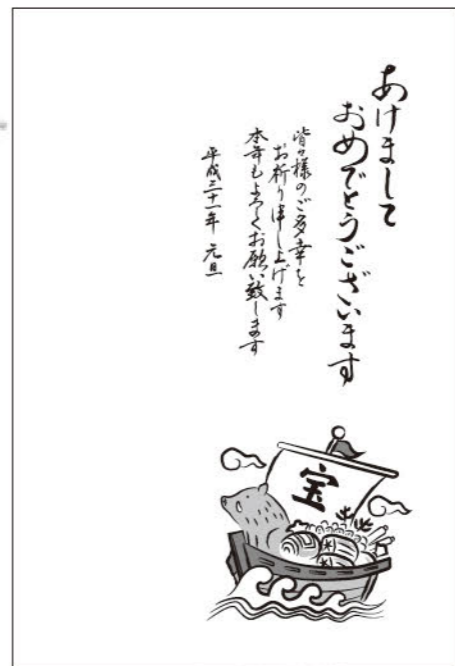 あけまして
おめでとうございます
皆々様のご多幸を
お祈り申し上げます
本年もよろしくお願い致します
平成三十一年 元旦
宝
米
米